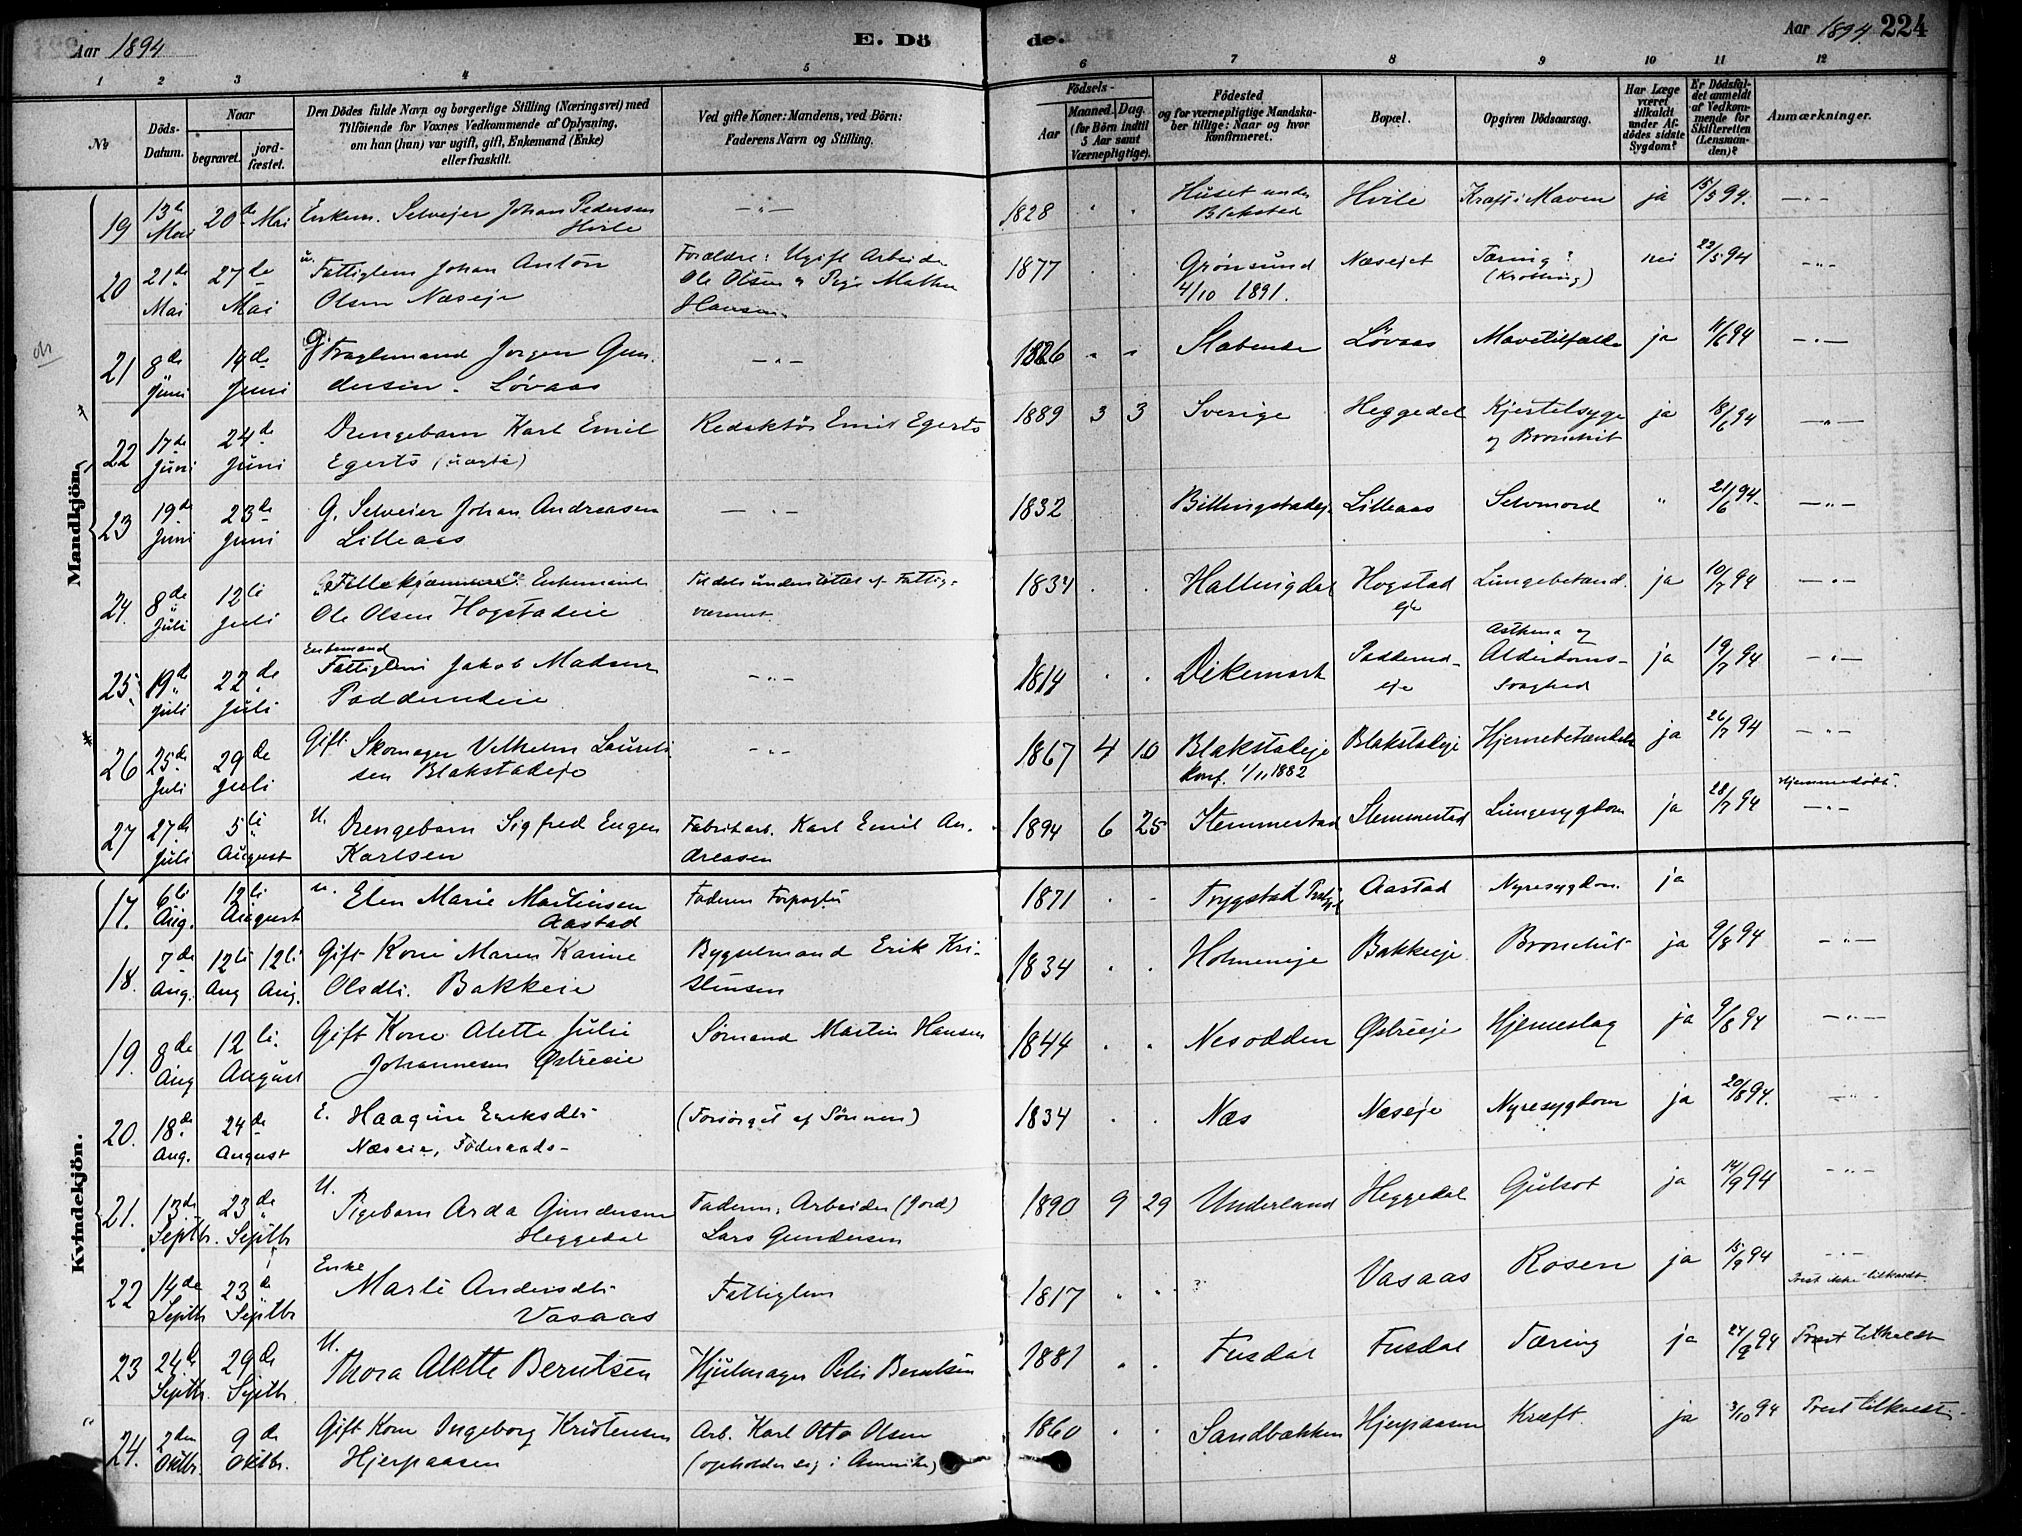 Aar 1894
E. Dö
de.
Aar 1894. 224
1 2 3 4 5 6 7 8 9 10 11 12
№
Döds-Datum.
Naar
begravet.
jord-fæstet.
Den Dödes fulde Navn og borgerlige Stilling (Næringsvei) med
Tilföiende for Voxnes Vedkommende af Oplysning,
om han (hun) var ugift, gift, Enkemand (Enke)
eller fraskilt.
Ved gifte Koner: Mandens, ved Börn:
Faderens Navn og Stilling.
Födsels-
Aar
Maaned. Dag.
(for Börn indtil
5 Aar samt
Værnepligtige).
Födested
og for værnepligtige Mandska-
ber tillige: Naar og hvor
konfirmeret.
Bopæl.
Opgiven Dödsaarsag.
Har Læge
været
tilkaldt
under Af-
dödes sidste
Sygdom?
Er Dödsfal-
det anmeldt
af Vedkom-
mende for
Skifteretten
(Lensman-
den)?
Anmærkninger.
Mandkjön.
19 13de Mai 20de Mai Enkem. Selveier Johan Pedersen Hvile —"— 1828 Huset under Blakstad Hvile Kræft i Maven ja 15/5 94. —"—
20 21de Mai 27de Mai u. Fattiglem Johan Anton Olsen Næseje Forældre: Ugift Arbeider Ole Olsen og Pige Mathea Hansen 1877 Grønsund 4/10 1891. Næsejet Tæring? nei 22/5 94 —"—
21 8de Juni 14de Juni G. Jørgen Gundersen Løvaas —"— 1826 Stabende Løvaas Mavetilfælde ja 11/6 94 —"—
22 17de Juni 24de Juni Drengebarn Karl Emil Egerts (uægte) Redaktør Emil Egerts 1889 3 3 Sverige Heggedal Kjertelsyge og Bronchit ja 18/6 94 —"—
23 19de Juni 23de Juni G. Selveier Johan Andreasen Lilleaas —"— 1832 Billingstadeje Lilleaas Selvmord " 21/6 94. —"—
24. 8de Juli 12te Juli Enkemand Ole Olsen Hogstadeie Tildels understøttet af Fattigvæsenet 1834 Hallingdal Hogstad eje Lungebetænd. ja 10/7 94 —"—
25. 19de Juli 22de Juli Enkemand Fattiglem Jakob Madsen —"— 1814 Dikemark Asthma og Alderdoms-Svaghed ja 19/7 94 —"—
26 25de Juli 29de Juli Gift Skomager Vilhelm Lauritsen Blakstadeje —"— 1867 4 10 Blakstadeje Konf. 1/11 1882 Blakstadeje Hjernebetændelse ja 26/7 94 —"—
27 27de Juli 5te August U. Drengebarn Sigfred Eugen Karlsen Fabrikarb. Karl Emil Andreasen 1894 6 25 Slemmestad Slemmestad Lungesygdom ja 28/7 94 Hjemmedøbt. —"—
Kvindekjön.
17. 6te Aug. 12te August u. Elen Marie Martinsen Aastad Faderen Forpagter 1871 Trygstad Aastad Nyresygdom. ja
18. 7de Aug. 12te Aug 12te Aug. Gift Kone Maren Karine Olsdtr. Bakkeie Bygselmand Erik Kristensen 1834 Holmeneje Bakkeeje Bronchit ja 9/8 94 —"—
19. 8de Aug 12te August Gift Kone Alette Julie Johannesen Østreeie Sømand Martin Hansen 1844 Nesodden Østreeje Hjerneslag ja 9/8 94 —"—
20. 18de Aug. 24de August E. Haagine Eriksdtr. Næseie, Føderaads- (Forsørget af Sønnen) 1834 Næs Næseje Nyresygdom ja 20/8 94. —"—
21. 13de Septbr. 23de Septbr U. Pigebarn Arda Gundersen Heggedal Faderen, Arbeider (Jord) Lars Gundersen 1890 9 29 Underland Heggedal Gulsot ja 14/9 94 —"—
22 14de Septbr 23de Septbr Enke Marte Andersdtr. Vasaas Fattiglem 1817 ? Vasaas Rosen ja 15/9 94 —"— Prest ikke tilkaldt.
23 24de Septbr. 29de Septbr. U. Thora Alette Berntsen Hjulmager Peter Berntsen 1881 Fusdal Fusdal Tæring ja 24/9 94 Prest tilkaldt
24. 2den Oktbr. 9de Oktbr. Gift Kone Ingeborg Kristensen Hjerpaasen Arb. Karl Otto Olsen (opholder sig i Amerika) 1860 Sandbakken Hjerpaasen Kræft. ja 3/10 94 Prest tilkaldt.